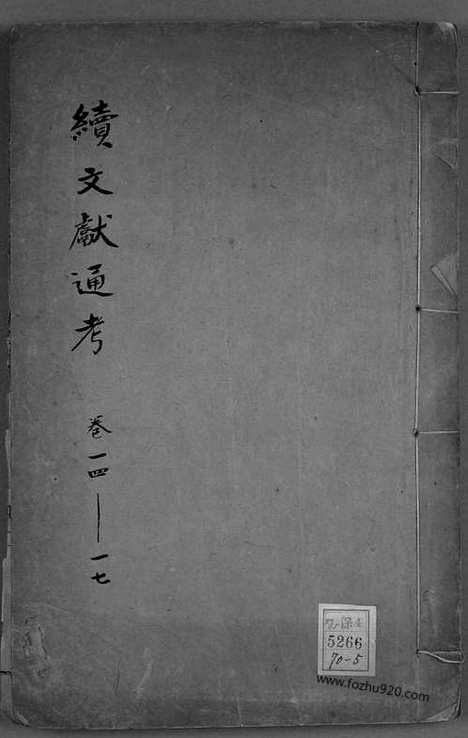 續文獻通考
卷一四—一七
5266
70-5
www.fozhu920.com